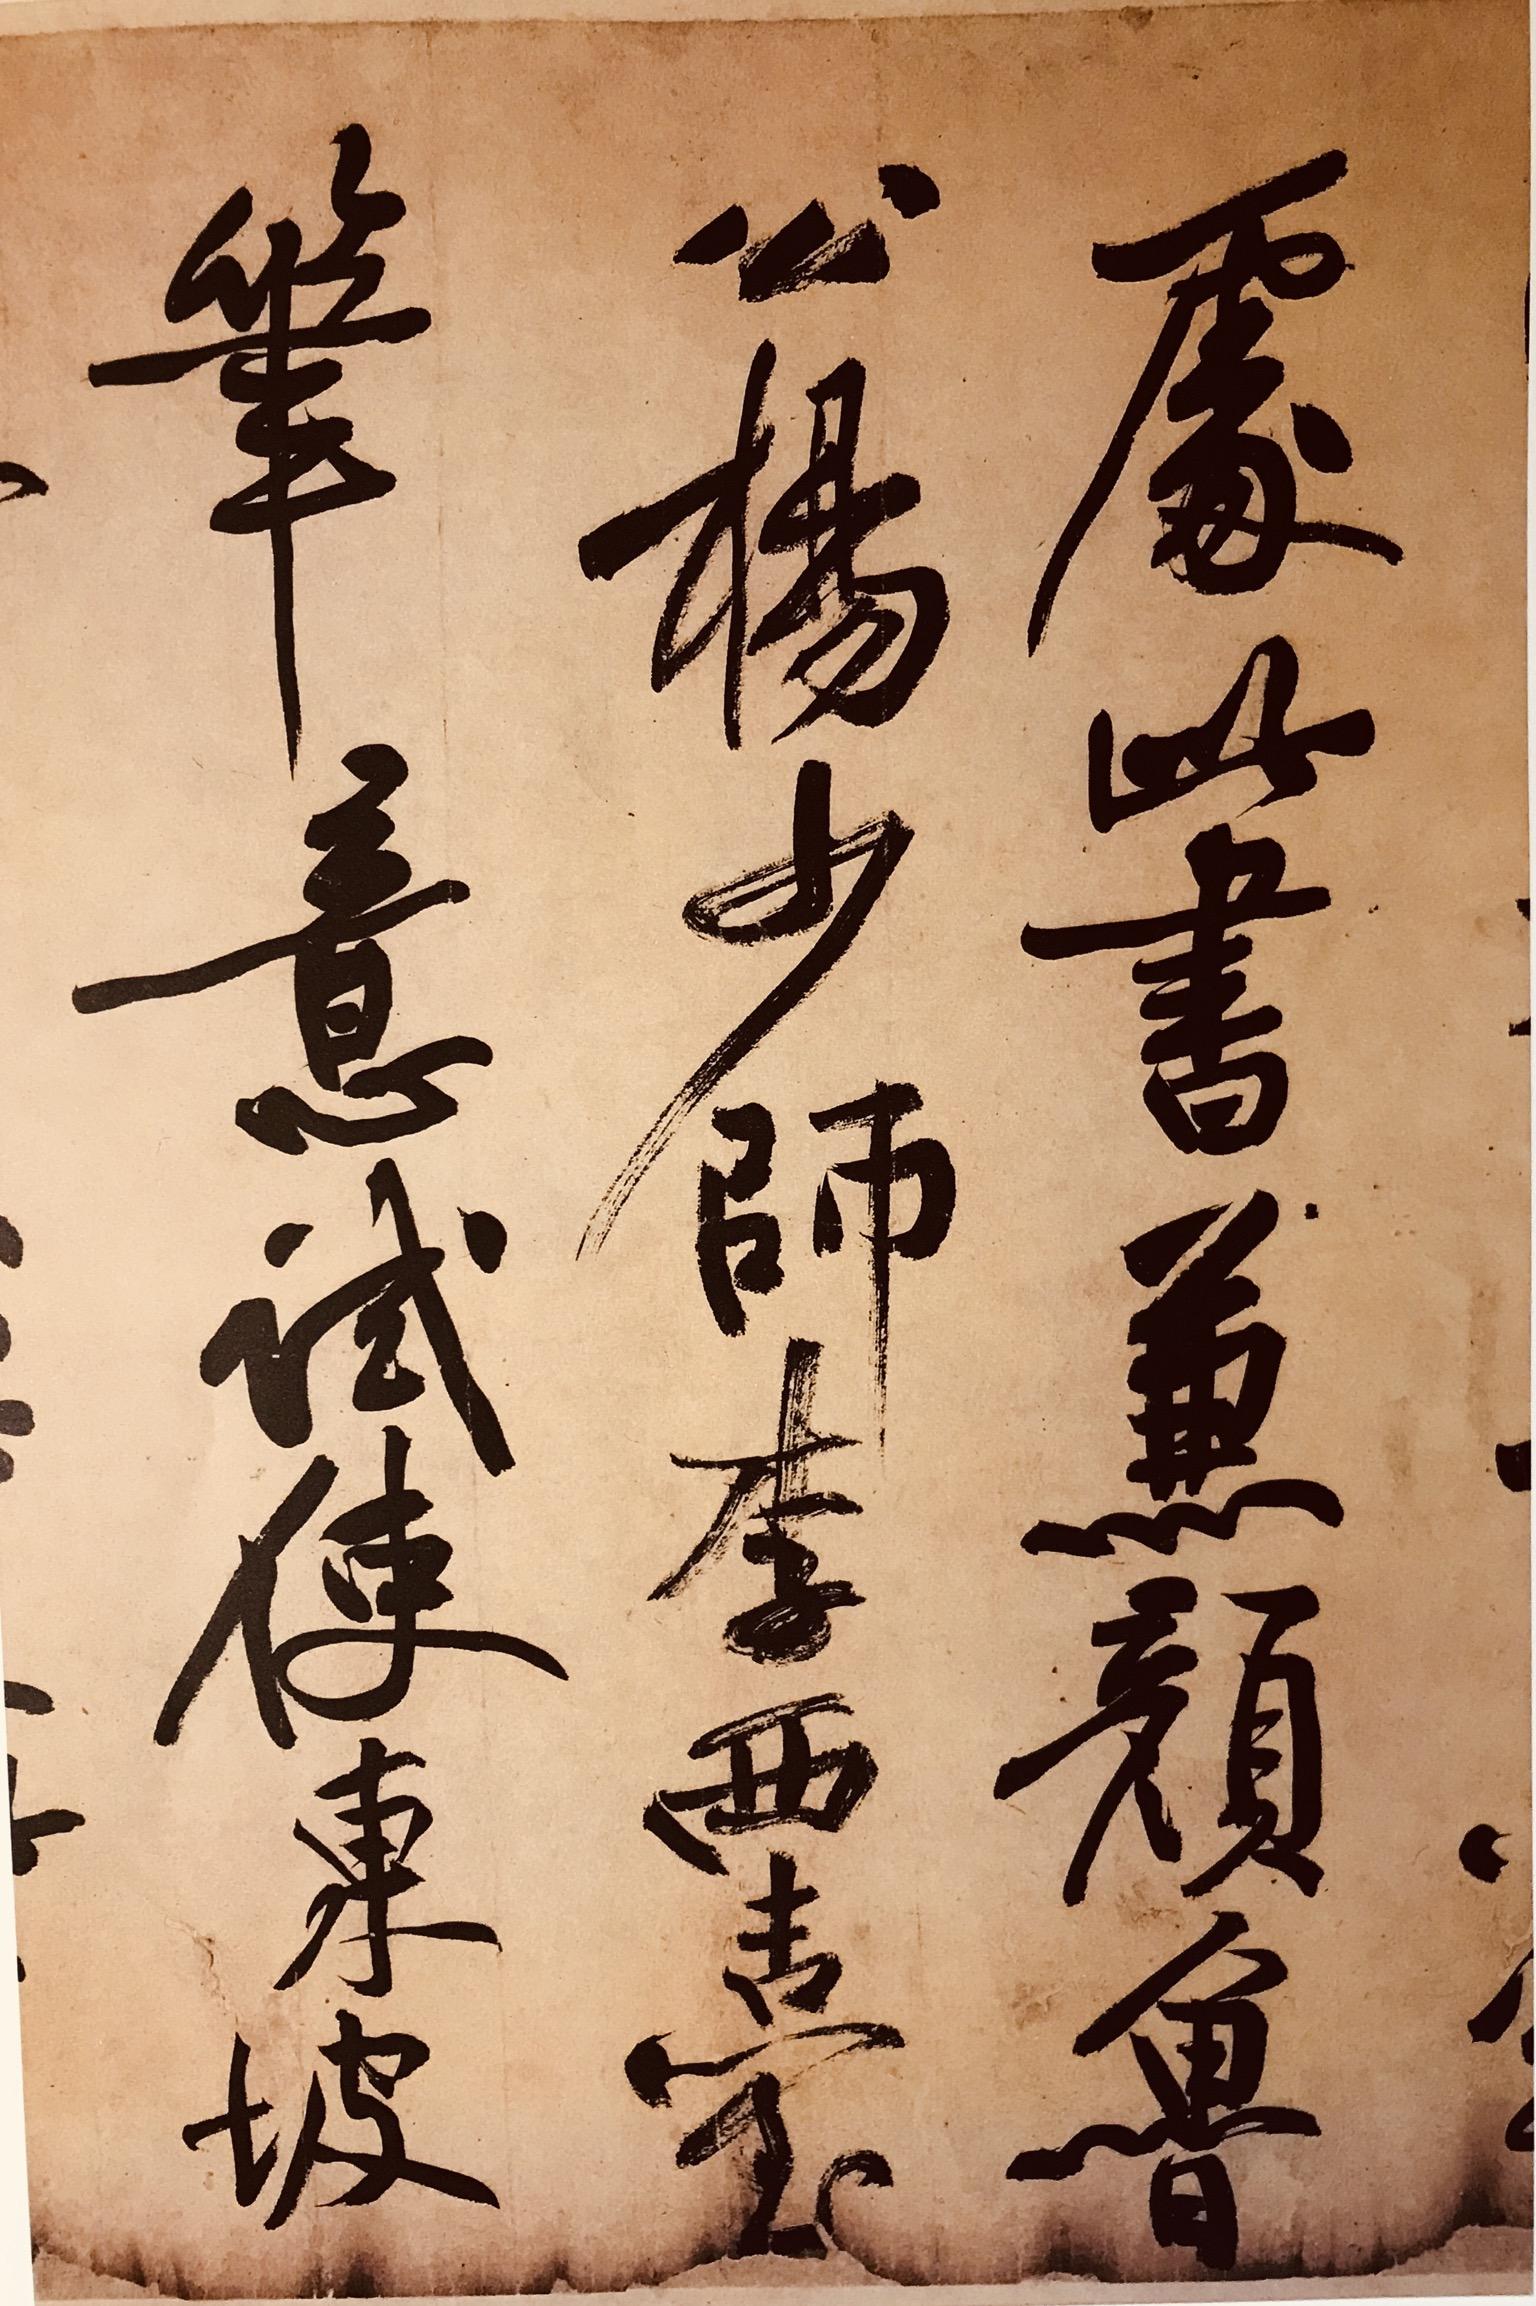 處此書兼顏魯
公楊少師李西臺
筆意試使東坡